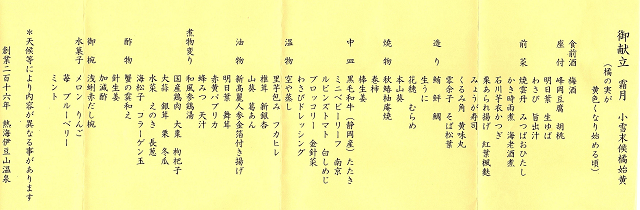 御献立 霜月 小雪末候橘始黄
（橘の実が
黄色くなり始める頃）
食前酒 梅酒
座付 峰岡豆腐 胡桃
明日葉 生ゆば
わさび 旨出汁
前菜 焼雲丹 みつばおひたし
かき時雨煮 海老酒煮
石川芋衣かつぎ
栗あられ揚げ 紅葉楓麩
みょうが寿司
くるみ 黄味丸
雲余子 そば松葉
造り 鮪 鮃 鯛
生うに
花穂 むらめ
本山葵
焼物 秋鮭柚庵焼
巻柿
棒生姜
中皿 黒毛和牛（静岡産）たたき
ミニベビーリーフ 南京
ルビンズトマト 白しめじ
ブロッコリー 金針菜
わさびドレッシング
温物 空や蒸し
里芋包み フカヒレ
椎茸 新銀杏
山葵 葛あん
油物 新高麗人参金箔付き揚げ
明日葉 舞茸
赤黄パプリカ
蜂みつ 天汁
煮物変り 和風参鶏湯
国産鶏肉 大棗 枸杞子
大蒜 銀茸 栗 冬瓜
水菜 えのき 長葱
海松子 コラーゲン玉
酢物 蟹の雲和え
針生姜
加減酢
御椀 浅蜊赤だし椀
水菓子 メロン りんご
苺 ブルーベリー
ミント
※天候等により内容が異なる事があります
創業二百十六年 熱海伊豆山温泉